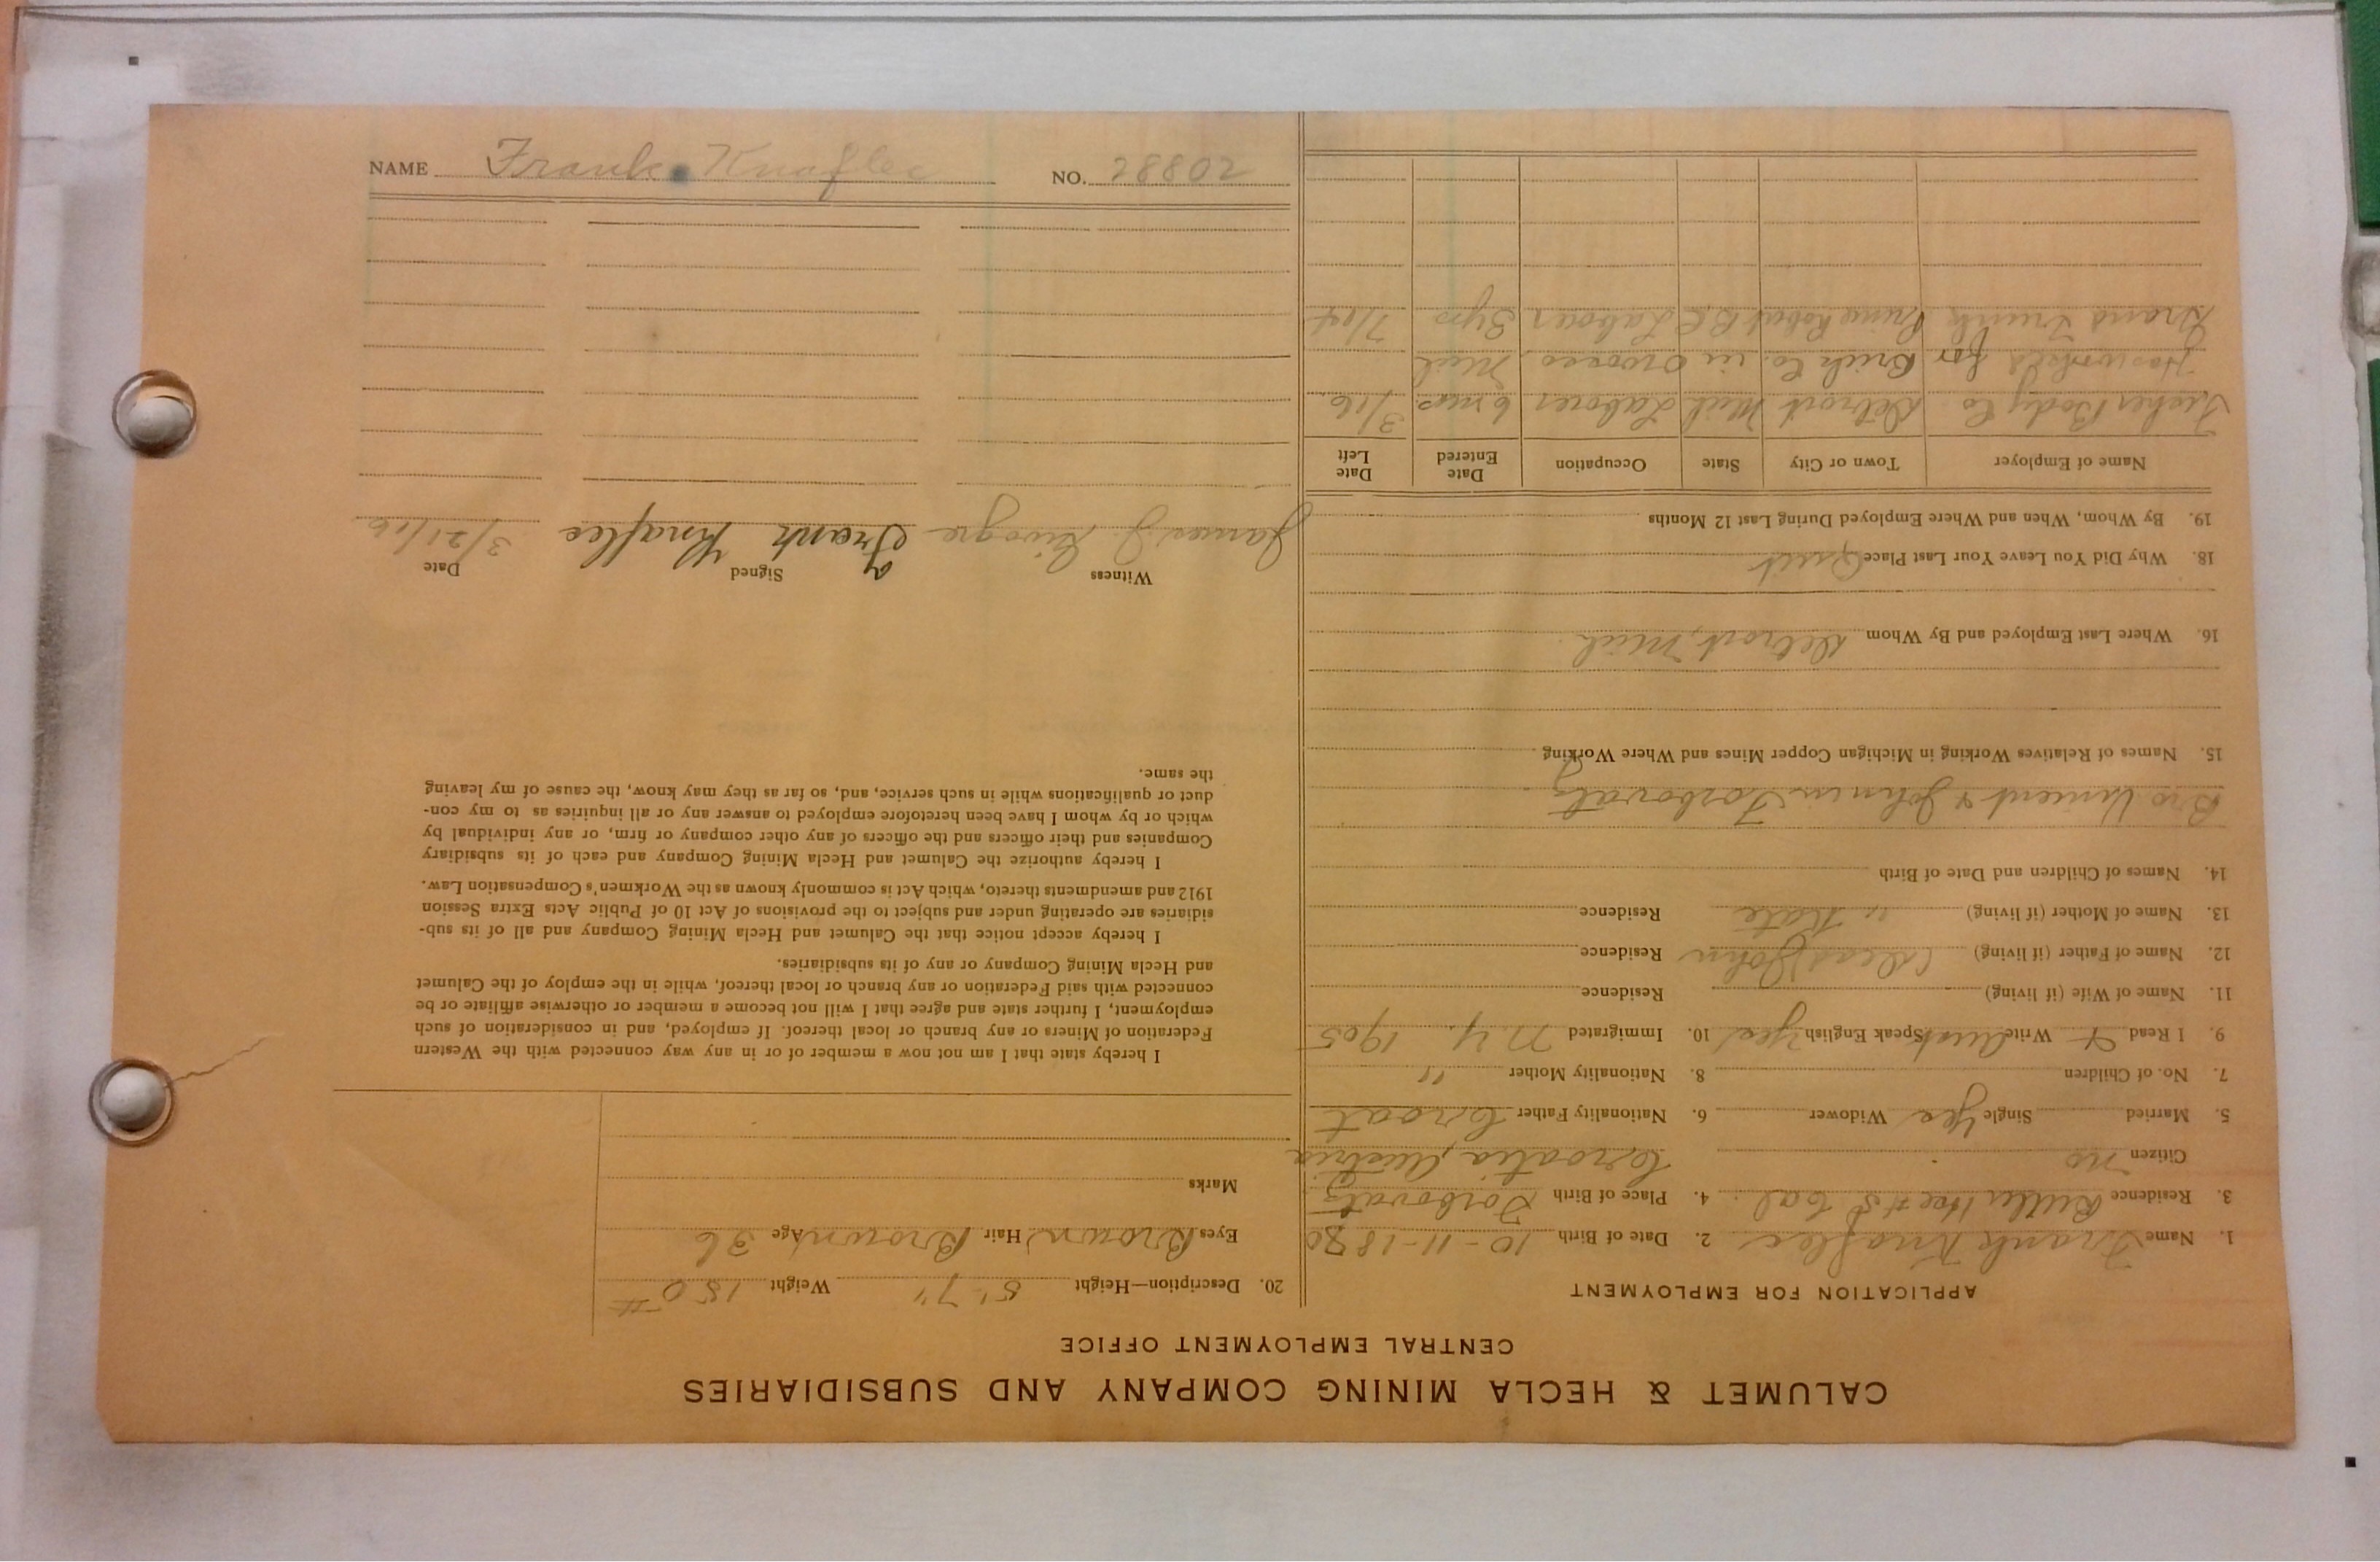 CALUMET & HECLA MINING COMPANY AND SUBSIDIARIES
CENTRAL EMPLOYMENT OFFICE
APPLICATION FOR EMPLOYMENT
1. Name Frank Knaflec 2. Date of Birth 10-11-1880
3. Residence Butler Hse #5 Cal 4. Place of Birth
Citizen no Croatia, Austria
5. Married Single Yes Widower 6. Nationality Father Croat
7. No. of Children 8. Nationality Mother "
9. I Read & Write Aust Speak English Yes 10. Immigrated N.Y. 1905
11. Name of Wife (if living) Residence
12. Name of Father (if living) (dead) John Residence
13. Name of Mother (if living) " Kate Residence
14. Names of Children and Date of Birth
Bro Vincent & John in
15. Names of Relatives Working in Michigan Copper Mines and Where Working
16. Where Last Employed and By Whom Detroit, Mich
18. Why Did You Leave Your Last Place Quit
19. By Whom, When and Where Employed During Last 12 Months
Name of Employer Town or City State Occupation Date Entered Date Left
Fisher Body Co Detroit Mich Laborer 6 mos 3/16
Has worked for Brick Co. in Owosso, Mich
Grand Trunk Prince Robert B.C. Laborer 3 yrs 7/04
20. Description—Height 5' 7" Weight 150 #
Eyes Brown Hair Brown Age 36
Marks
I hereby state that I am not now a member of or in any way connected with the Western
Federation of Miners or any branch or local thereof. If employed, and in consideration of such
employment, I further state and agree that I will not become a member or otherwise affiliate or be
connected with said Federation or any branch or local thereof, while in the employ of the Calumet
and Hecla Mining Company or any of its subsidiaries.
I hereby accept notice that the Calumet and Hecla Mining Company and all of its sub-
sidiaries are operating under and subject to the provisions of Act 10 of Public Acts Extra Session
1912 and amendments thereto, which Act is commonly known as the Workmen's Compensation Law.
I hereby authorize the Calumet and Hecla Mining Company and each of its subsidiary
Companies and their officers and the officers of any other company or firm, or any individual by
which or by whom I have been heretofore employed to answer any or all inquiries as to my con-
duct or qualifications while in such service, and, so far as they may know, the cause of my leaving
the same.
Witness Signed Date
James J. Frank Knaflec 3/21/16
NAME Frank Knaflec NO. 28802